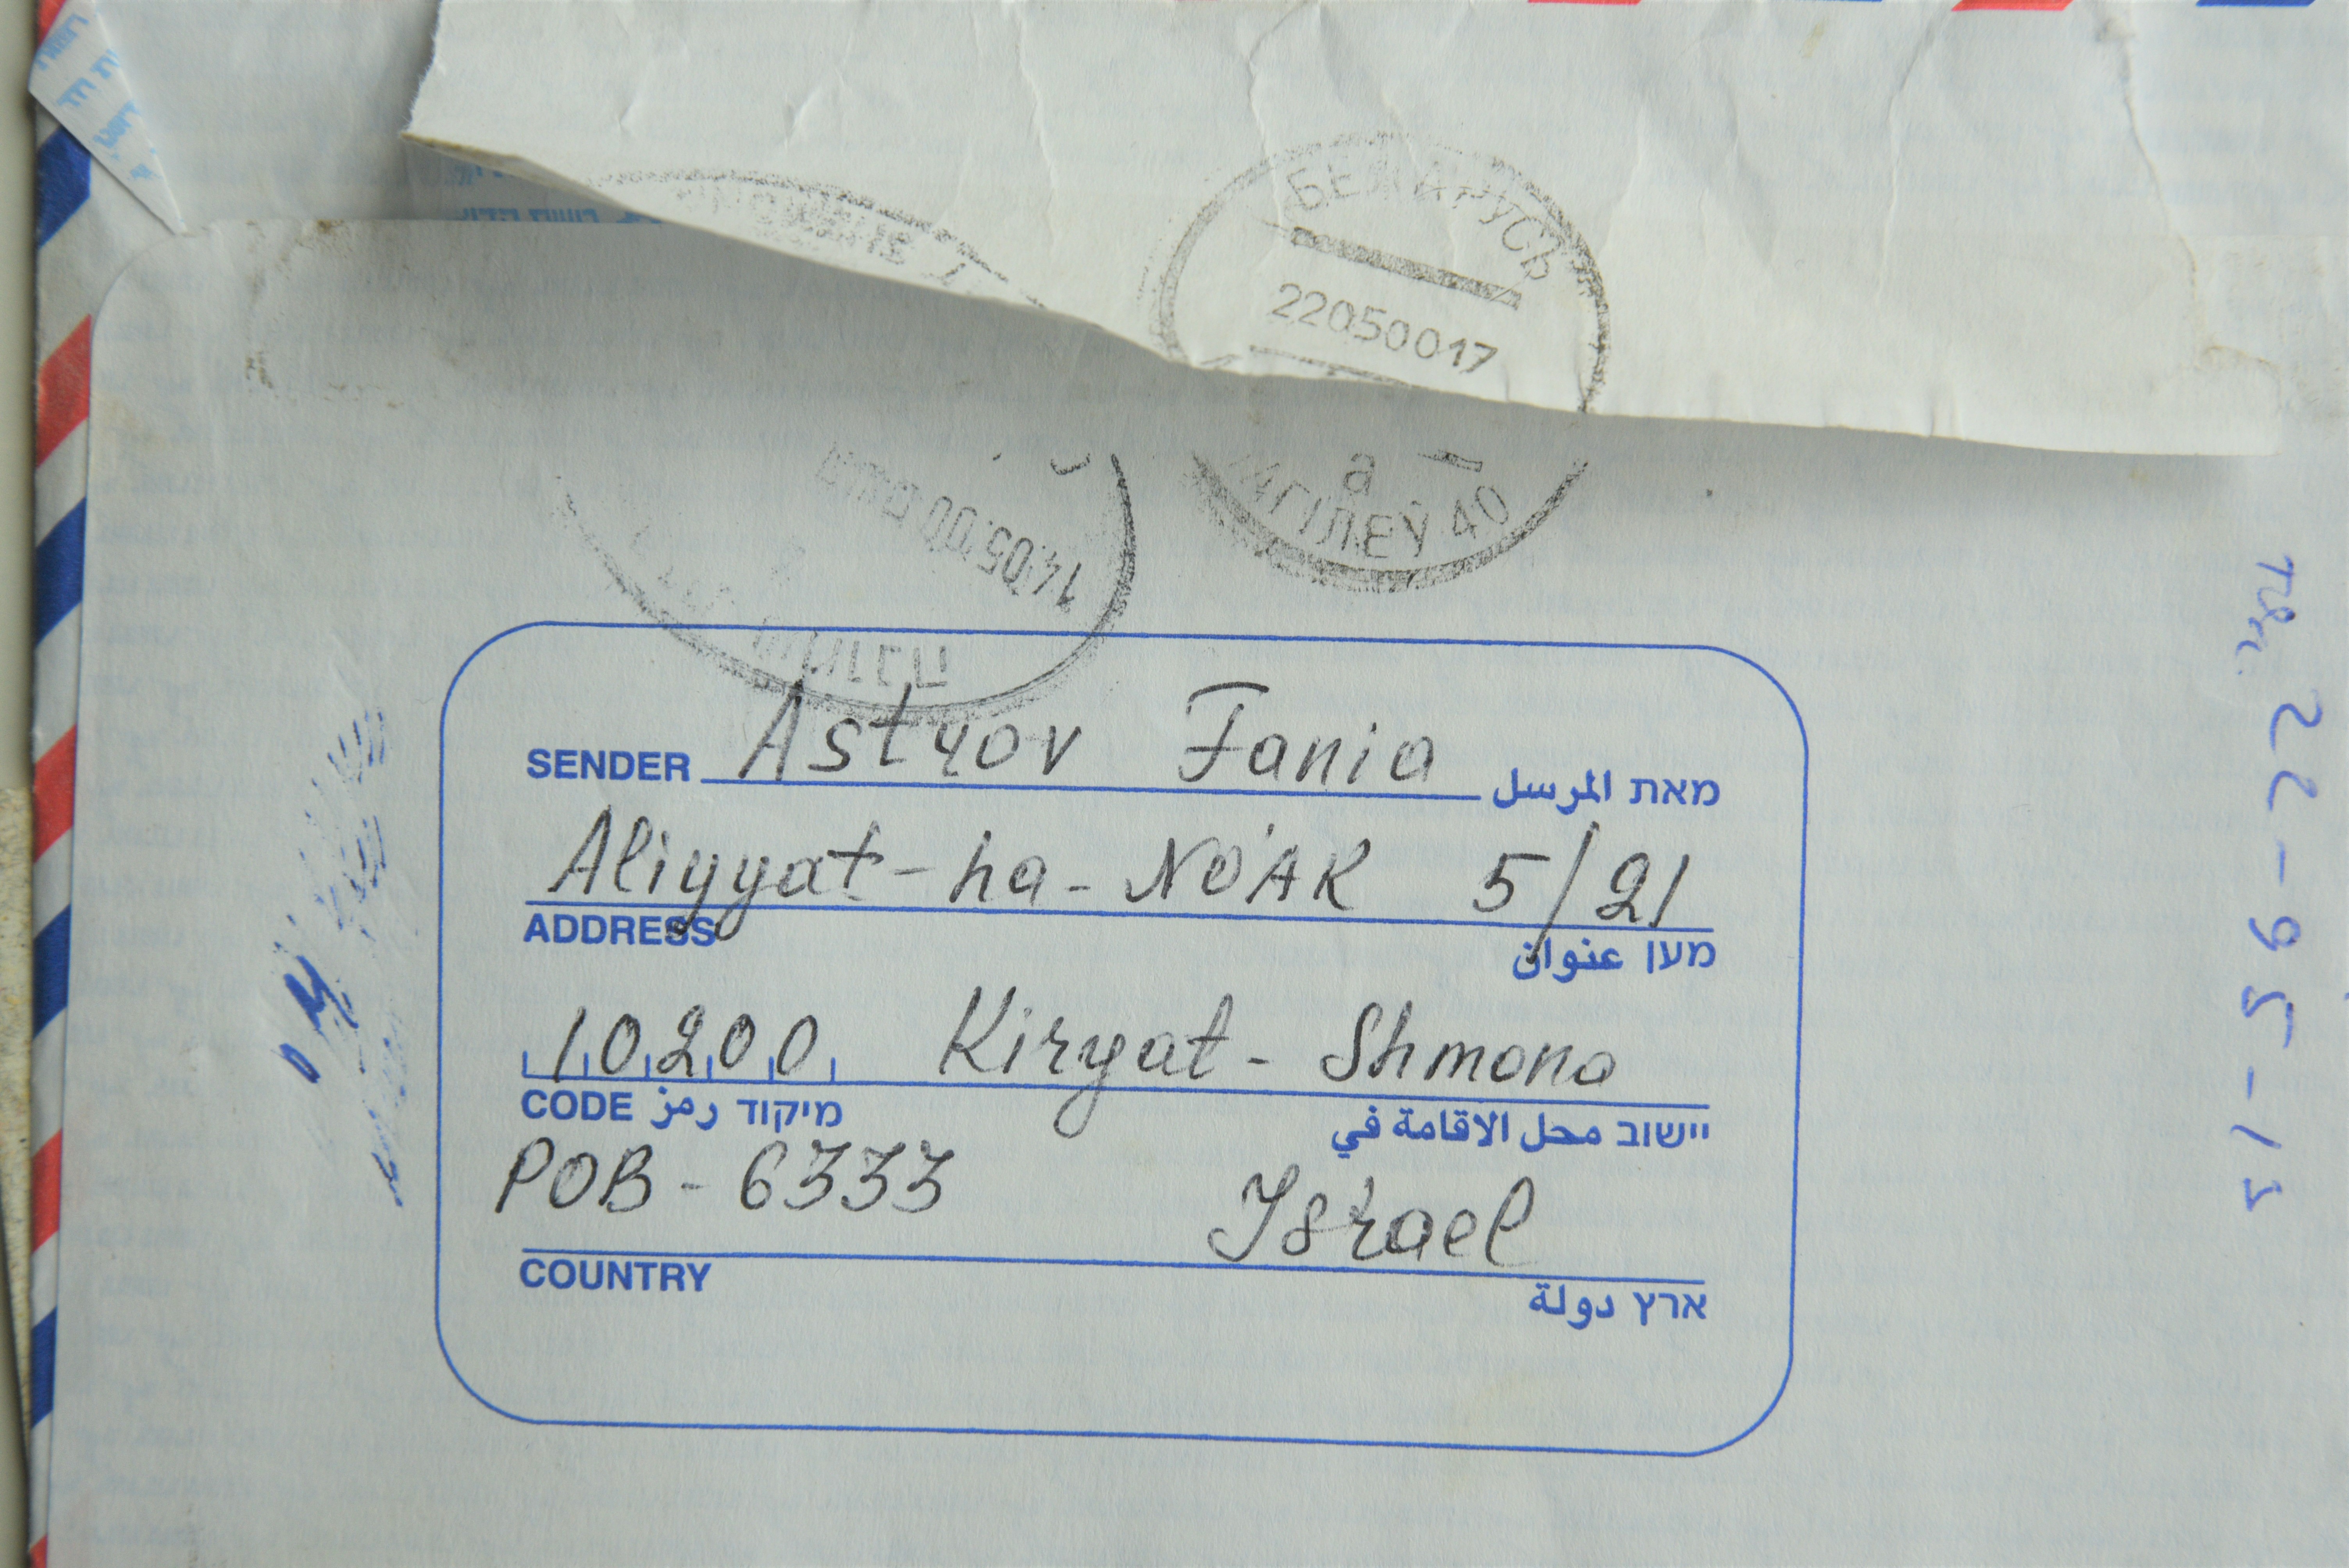 БЕЛАРУСЬ
22050017
а
МАГІЛЕЎ 40
14.05.00
SENDER Astrov Fania מאת المرسل
Aliyyat-ha-NO'AR 5/21
ADDRESS מען عنوان
10200 Kiryat-Shmona
CODE מיקוד رمز יישוב محل الاقامة في
POB-6333 Israel
COUNTRY ארץ دولة
22-95-15